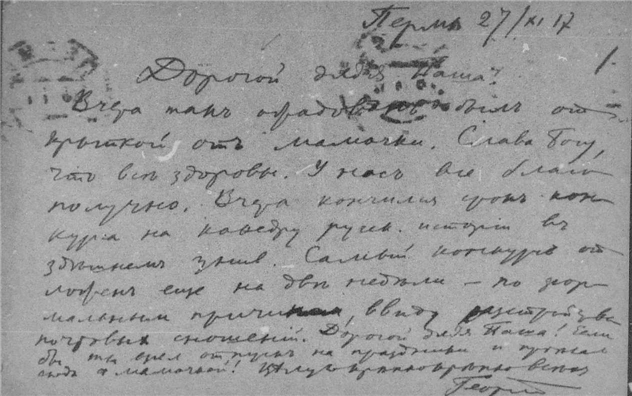 Пермь 27/XI 17
Дорогой дядя Паша!
Вчера такъ обрадованъ былъ от
крыткой отъ мамочки. Слава Богу,
что всѣ здоровы. У насъ все благо
получно. Вчера кончился срокъ кон
курса на кафедру русск. исторіи въ
здѣшнемъ унив. Самый конкурсъ от
ложенъ еще на двѣ недѣли – по фор
мальнымъ причинамъ, ввиду разстройства
почтовыхъ сношеній. Дорогой дядя Паша! Если
бы ты взял отпускъ на праздники и
сюда с мамочкой! Цѣлую крѣпко крѣпко всѣхъ
Георгій